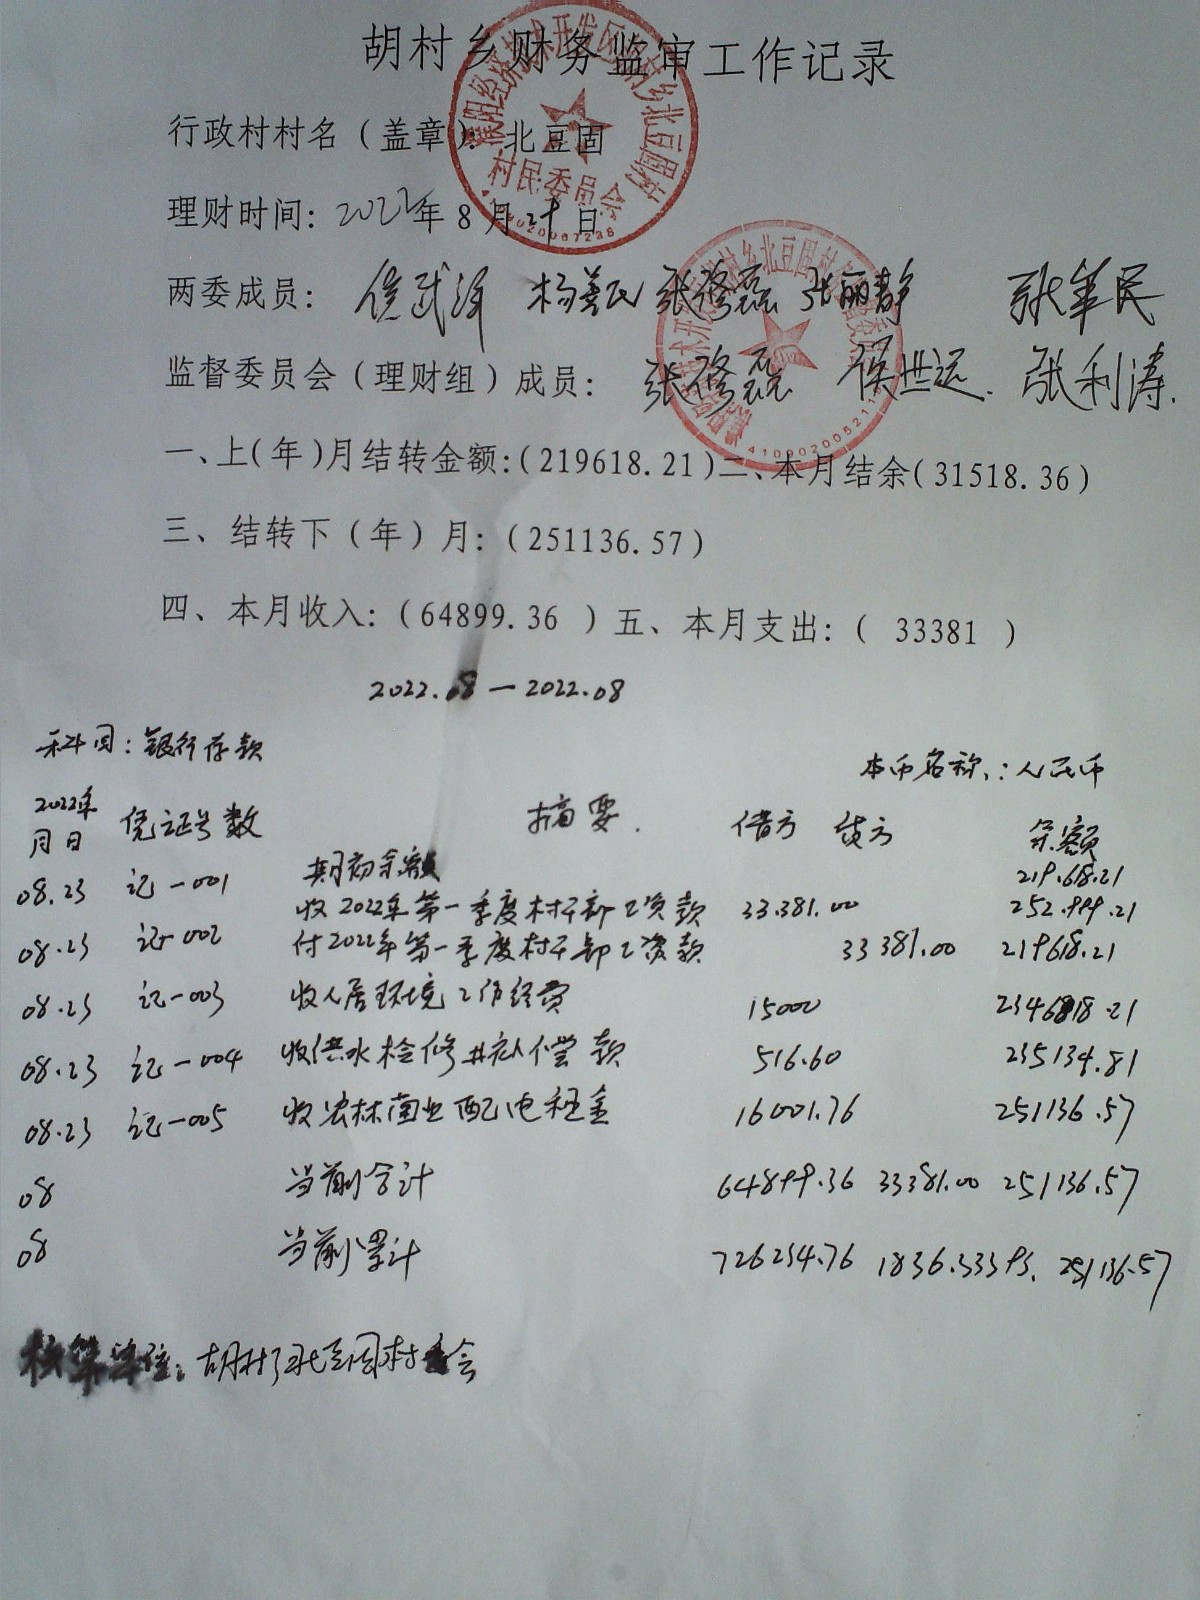 胡村乡财务监审工作记录
行政村村名（盖章）：北豆固
村民委员会
理财时间：2022年8月29日
两委成员： 侯武泽 杨善民 张修磊 张丽静 张军民
监督委员会（理财组）成员： 张修磊 侯世远. 张利涛.
410902005211
一、上(年)月结转金额:(219618.21)二、本月结余(31518.36)
三、结转下（年）月:（251136.57）
四、本月收入:（64899.36 ）五、本月支出:（ 33381 ）
2022.08 — 2022.08
科目：银行存款
本币名称：人民币
2022年
月日 凭证号数 摘要. 借方 贷方 余额
期初余额 219.618.21
08.23 记-001 收2022年第一季度村干部工资款 33.381.00 252.999.21
08.23 记-002 付2022年第一季度村干部工资款 33381.00 219618.21
08.23 记-003 收人居环境工作经费 15000 234618.21
08.23 记-004 收供水检修井补偿款 516.60 235134.81
08.23 记-005 收农林南业配电租金 16001.76 251136.57
08 当前合计 64899.36 33381.00 251136.57
08 当前累计 726234.76 251136.57
核算单位：胡村乡北豆固村委会